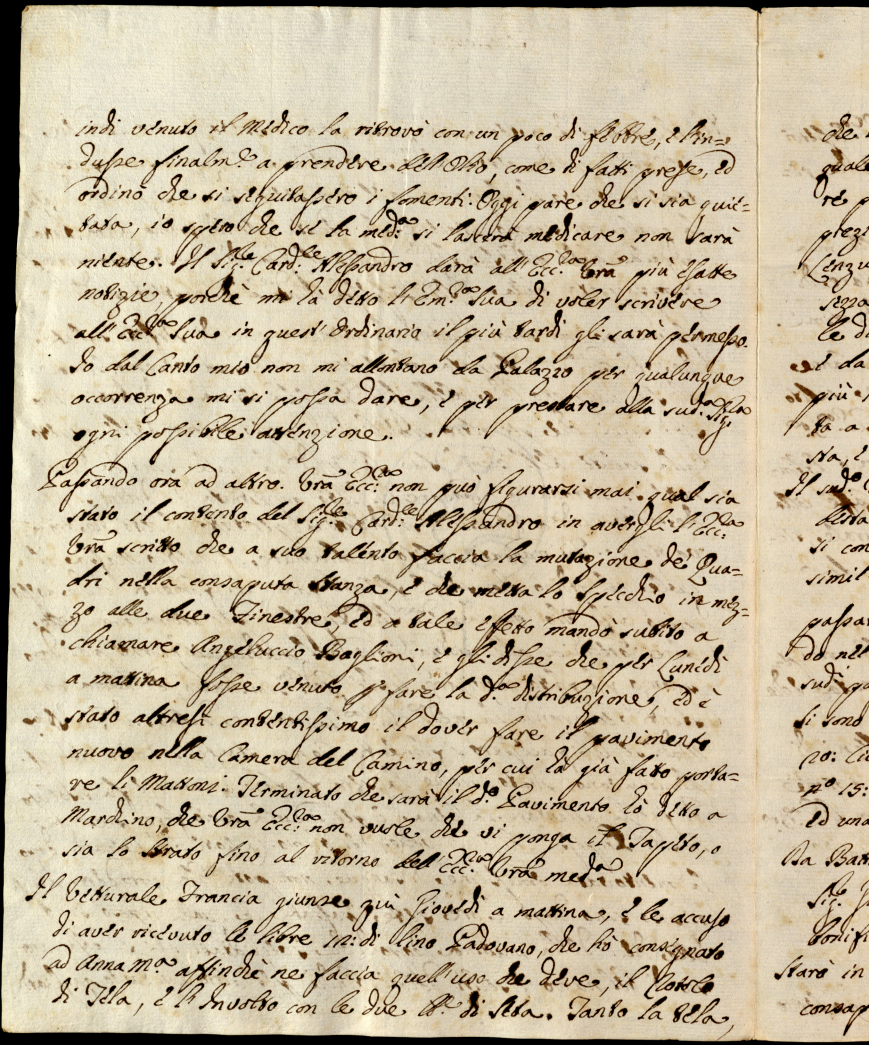 indi venuto il Medico la ritrovò con un poco di febbre, e l'in=
dusse finalm.te a prendere dell'Olio, come di fatti prese, ed
ordinò che si seguitassero i fomenti. Oggi pare che si sia quie=
tata, io spero che se la med.ma si lascerà medicare non sarà
niente. Il Sig.re Card.le Alessandro darà all'Ecc.za Vrã più esatte
notizie, perchè mi hà detto l'Em.za Sua di voler scrivere
all'Ecc.za Sua in quest'Ordinario il più tardi gli sarà permesso.
Io dal Canto mio non mi allontano da Palazzo per qualunque
occorrenza mi si possa dare, e per prestare alla sud.a Sig.ra
ogni possibile attenzione.
Passando ora ad altro. Vrã Ecc.za non può figurarsi mai qual sia
stato il contento del Sig.re Card.le Alessandro in avergli l'Ecc.za
Vrã scritto che a suo talento faccia la mutazione de' Qua=
dri nella consaputa stanza, e che metta lo Specchio in mez=
zo alle due Finestre, ed a tale effetto mandò subito a
chiamare Angeluccio Baglioni, e gli disse che per Lunedì
a mattina fosse venuto p fare la d.a distribuzione, ed è
stato altresì contentissimo il dover fare il pavimento
nuovo nella Camera del Camino, per cui hà già fatto porta=
re li Mattoni. Terminato che sarà il d.o Pavimento hò detto a
Marchino, che Vrã Ecc.za non vuole che vi ponga il Tapeto, o
sia lo Strato fino al ritorno dell'Ecc.za Vrã med.ma
Il Vetturale Francia giunse quì Giovedì a mattina, e le accuso
di aver ricevuto le libre di lino Padovano, che hò consegnato
ad Anna M.a affinchè ne faccia quell'uso che deve, il Rotolo
di Tela, e l'Involto con le due lb.e di Seta. Tanto la tela,